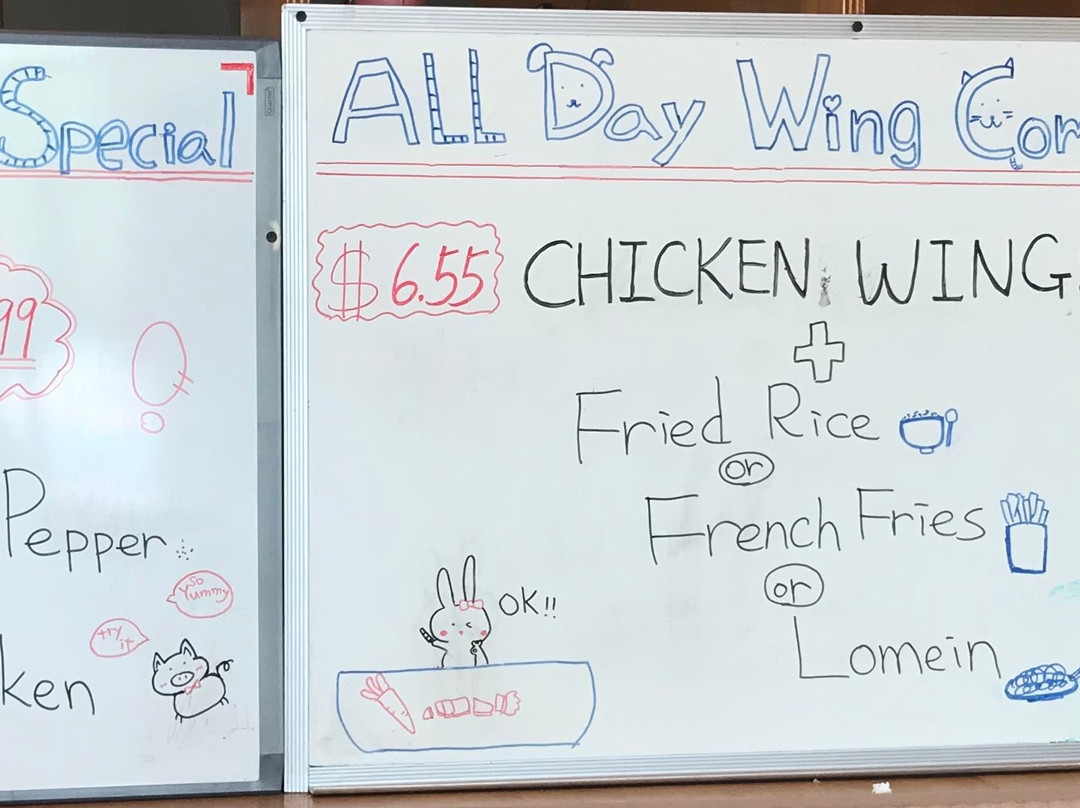 Special
99
Pepper
so
Yummy
try
it
ken
ALL Day Wing Com
$6.55 CHICKEN WING
+
Fried Rice
or
French Fries
or
Lomein
OK!!